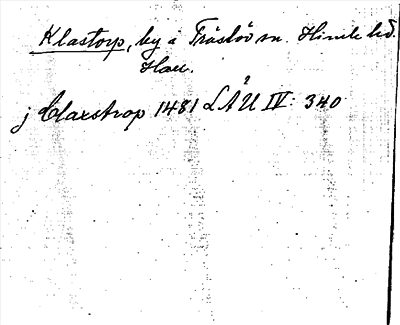 Klastorp, by i Träslöv sn. Himle hd.
Hall.
j Claxstrop 1481 LÄU IV: 340